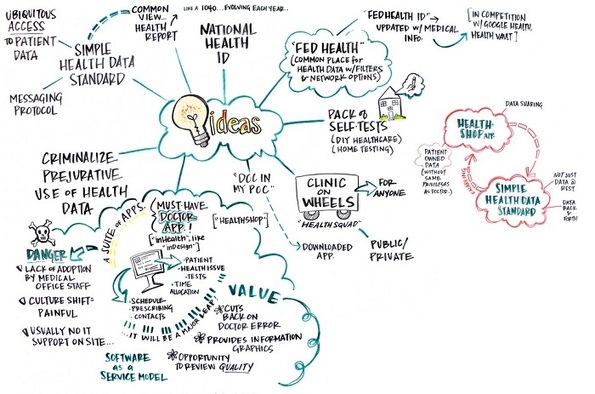 UBIQUITOUS
ACCESS
TO PATIENT
DATA
COMMON
VIEW...
HEALTH
REPORT
LIKE A 1040...EVOLVING EACH YEAR..
SIMPLE
HEALTH DATA
STANDARD
MESSAGING
PROTOCOL
NATIONAL
HEALTH
ID
"FED HEALTH"
(COMMON PLACE for
HEALTH DATA w/FILTERS
& NETWORK OPTIONS)
"FEDHEALTH ID"
UPDATED w/ MEDICAL
INFO.
[IN COMPETITION
w/GOOGLE HEALTH,
HEALTH VAULT]
ideas
PACK of
SELF-TESTS
(DIY HEALTHCARE)
(HOME TESTING)
CRIMINALIZE
PREJURATIVE
USE OF HEALTH
DATA
"DOC IN
MY POC"
CLINIC
ON
WHEELS
"HEALTH SQUAD"
FOR
ANYONE
DOWNLOADED
APP.
PUBLIC/
PRIVATE
DATA SHARING
HEALTH-
SHOP APP.
PATIENT
OWNED
DATA
(WITHOUT
SAME
PRIVILEGES
AS DOCTOR.)
SIMPLE
HEALTH DATA
STANDARD
NOT JUST
DATA @
REST
DATA
BACK &
FORTH!
A SUITE OF APPS
MUST HAVE
DOCTOR
APP.!
["inHealth", like
"inDesign"]
["HEALTHSHOP"]
PATIENT
HEALTH ISSUE
TESTS
TIME
ALLOCATION
SCHEDULE
PRESCRIBING
CONTACTS
...IT WILL BE A MAJOR LEAP!
DANGER
LACK OF ADOPTION
BY MEDICAL
OFFICE STAFF
CULTURE SHIFT=
PAINFUL
USUALLY NO IT
SUPPORT ON SITE...
SOFTWARE
as a
SERVICE MODEL
VALUE
CUTS
BACK ON
DOCTOR ERROR
PROVIDES INFORMATION
GRAPHICS
OPPORTUNITY
TO REVIEW QUALITY